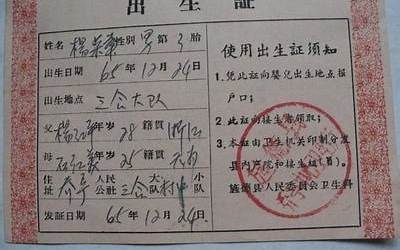 出生証
姓名 楊 性别 男 第 3 胎
出生日期 65年12月24日
出生地点 三合大队
父 楊 年岁 28 籍貫 浙江
母 年岁 25 籍貫
住址 人民公社 三合 大队 村中 小队
发証日期 65年12月24日
使用出生証须知
1. 凭此証向嬰兒出生地点报
户口；
2. 此証向接生者領取；
3. 本証由卫生机关印制分发
县内产院和接生組(員)。
旌德县人民委員会卫生科